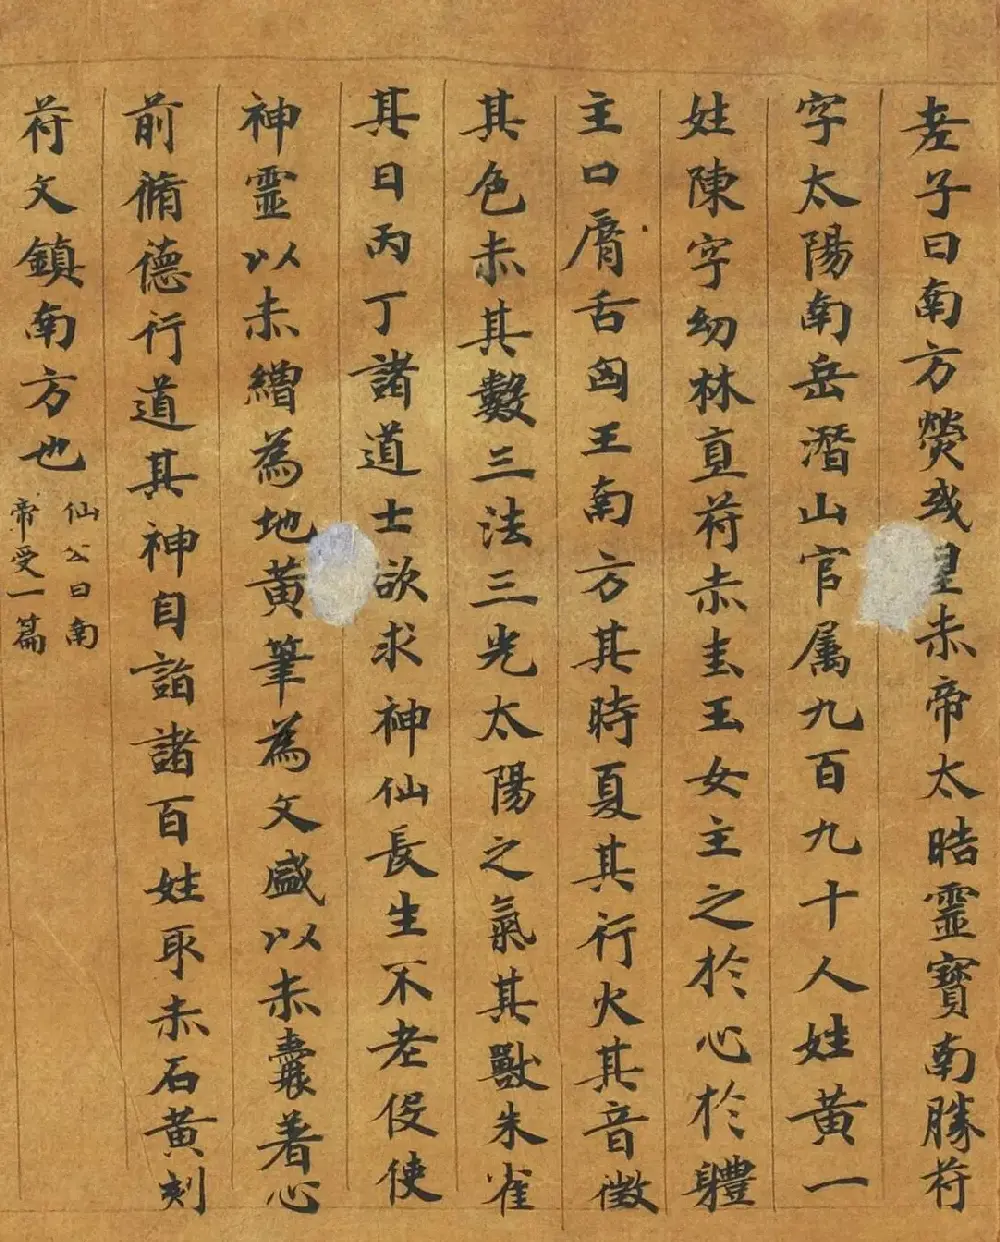 老子曰南方熒或皇赤帝太晧靈寶南勝苻
字太陽南岳潛山官属九百九十人姓黄一
姓陳字幼林直苻赤圭玉女主之於心於軆
主口脣舌匈王南方其時夏其行火其音徵
其色赤其數三法三光太陽之氣其獸朱雀
其日丙丁諸道士欲求神仙長生不老伇使
神靈以赤繒為地黄筆為文盛以赤囊着心
前脩德行道其神自詣諸百姓取赤石黄刻
苻文鎮南方也 仙公曰南
帝受一篇